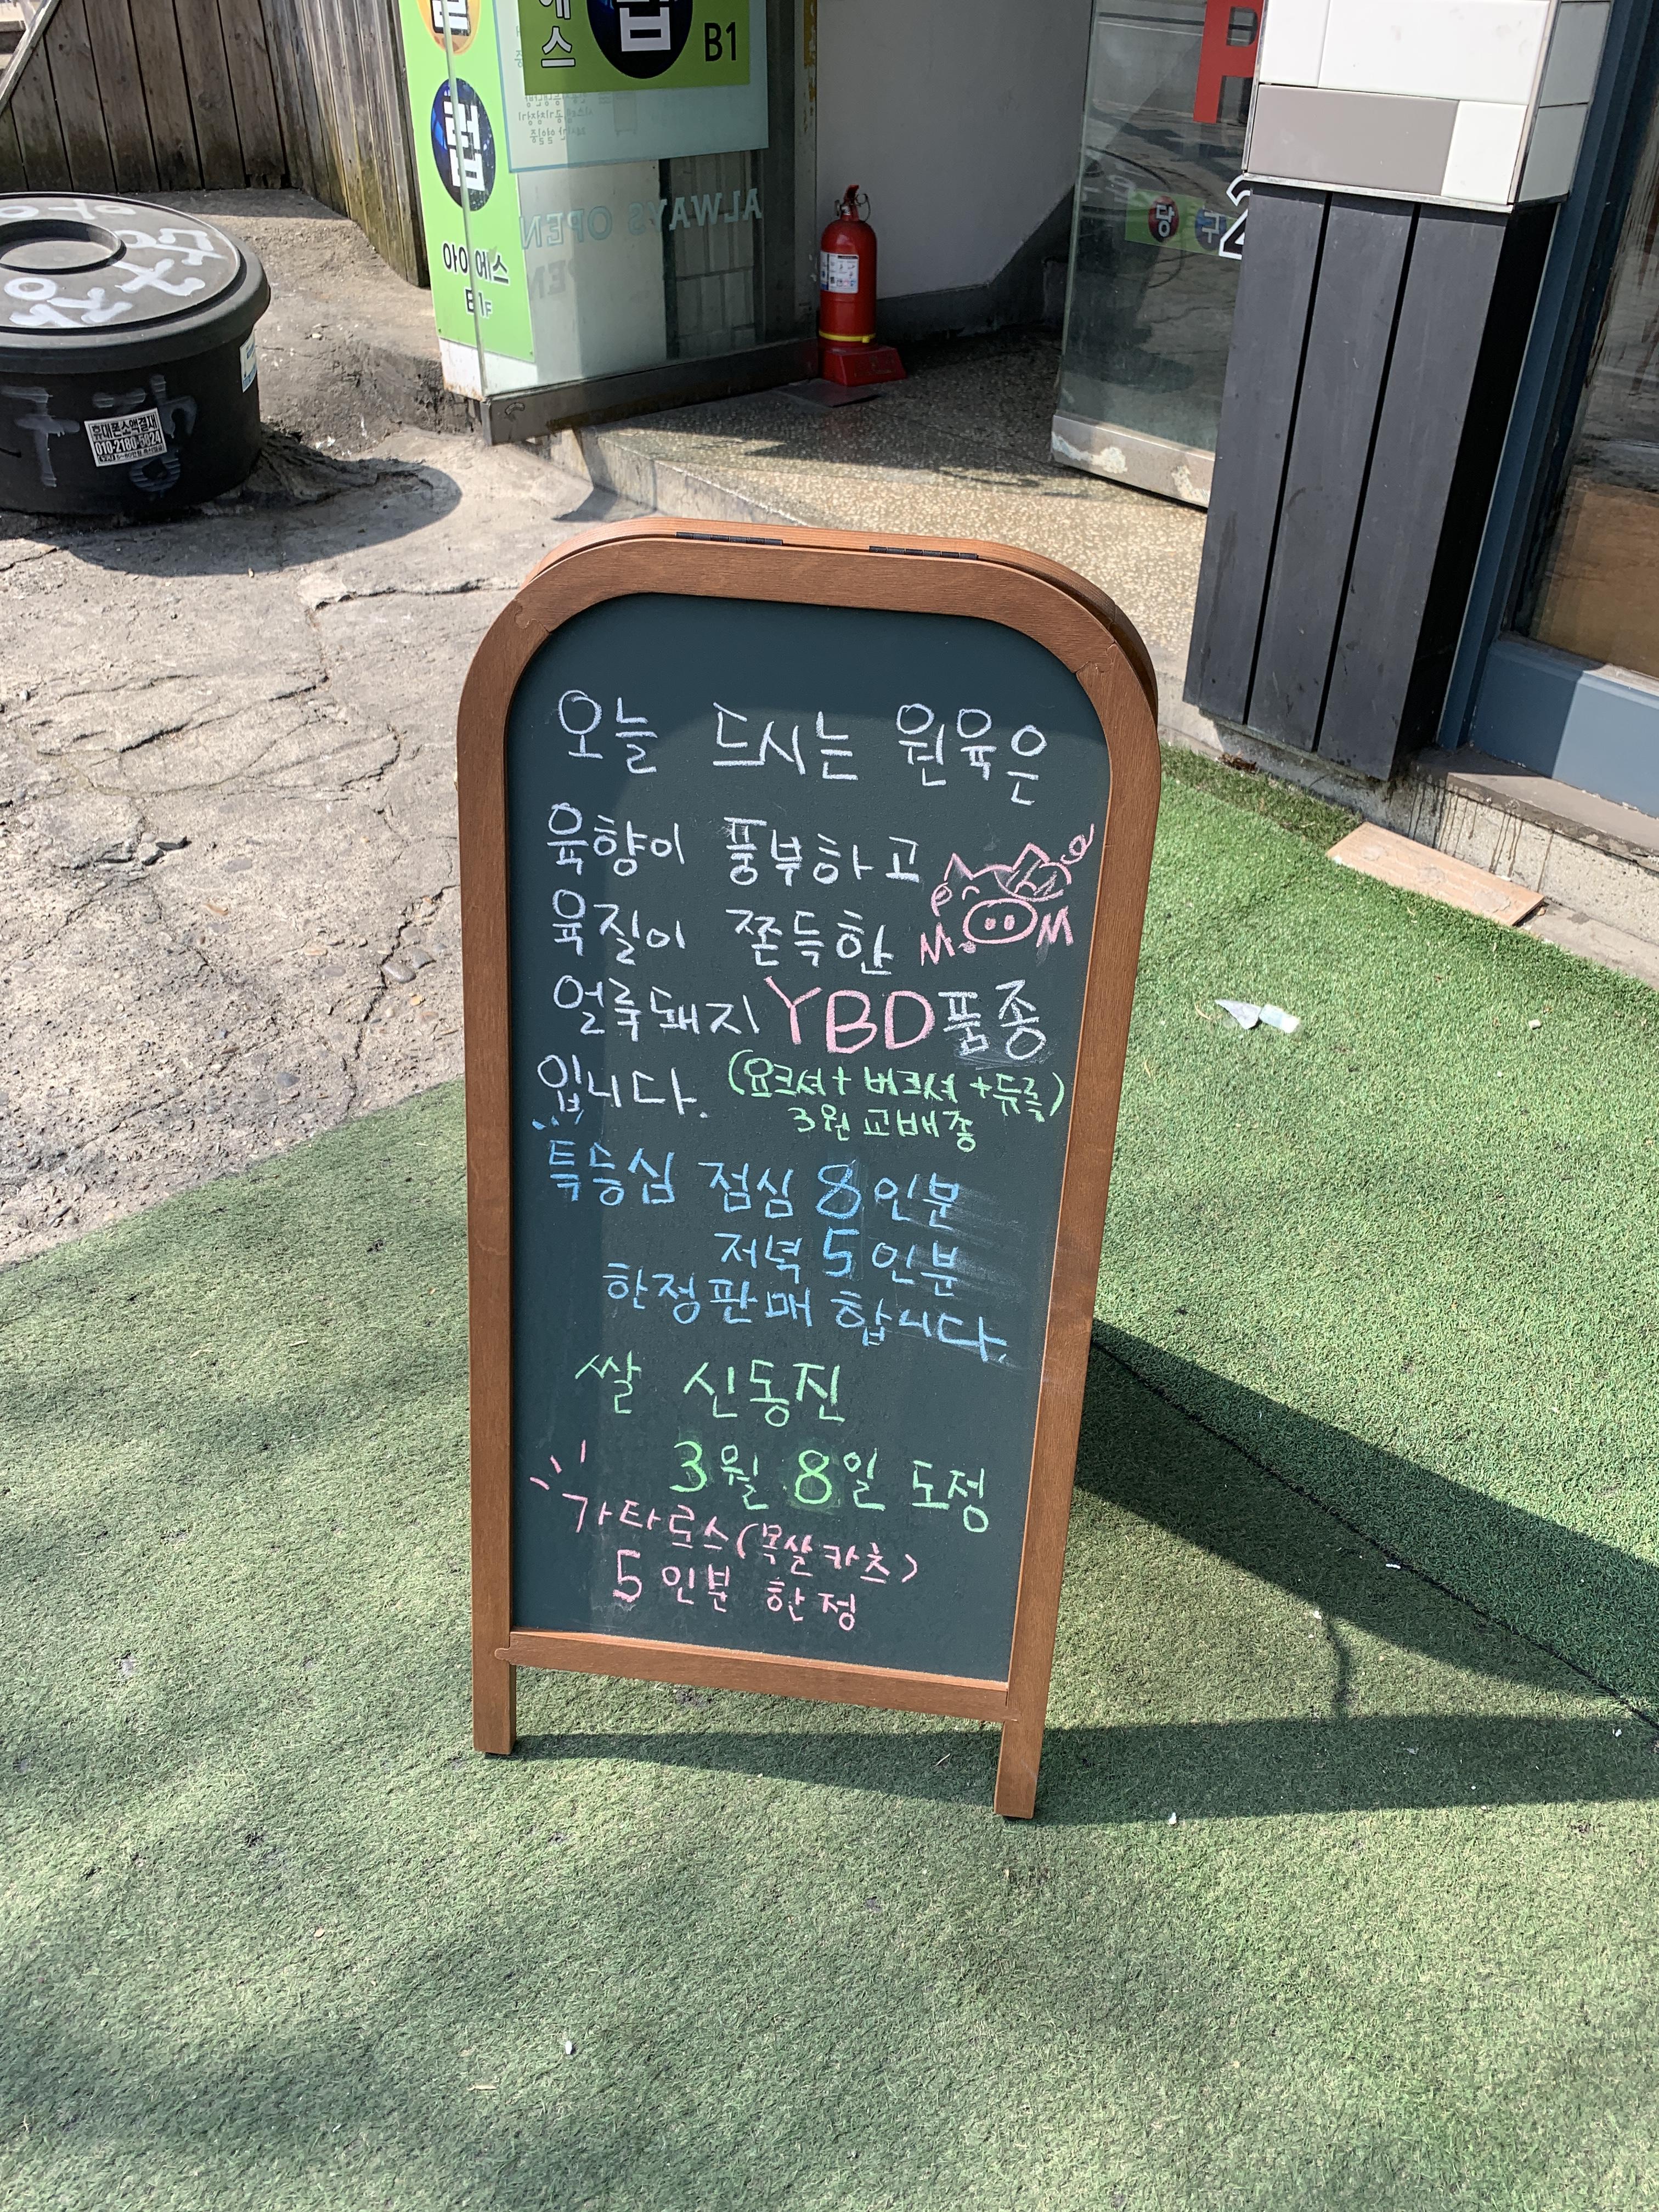 에스
랩
B1
랩
아이에스
B1F
ALWAYS OPEN
당구
2
휴대폰소액결제
010-2180-5024
오늘 드시는 원육은
육향이 풍부하고
육질이 쫀득한
얼룩돼지 YBD품종
입니다.
(요크셔+버크셔+듀록)
3원 교배종
특등심 점심 8인분
저녁 5인분
한정판매 합니다.
쌀 신동진
3월 8일 도정
가타로스(목살카츠)
5인분 한정